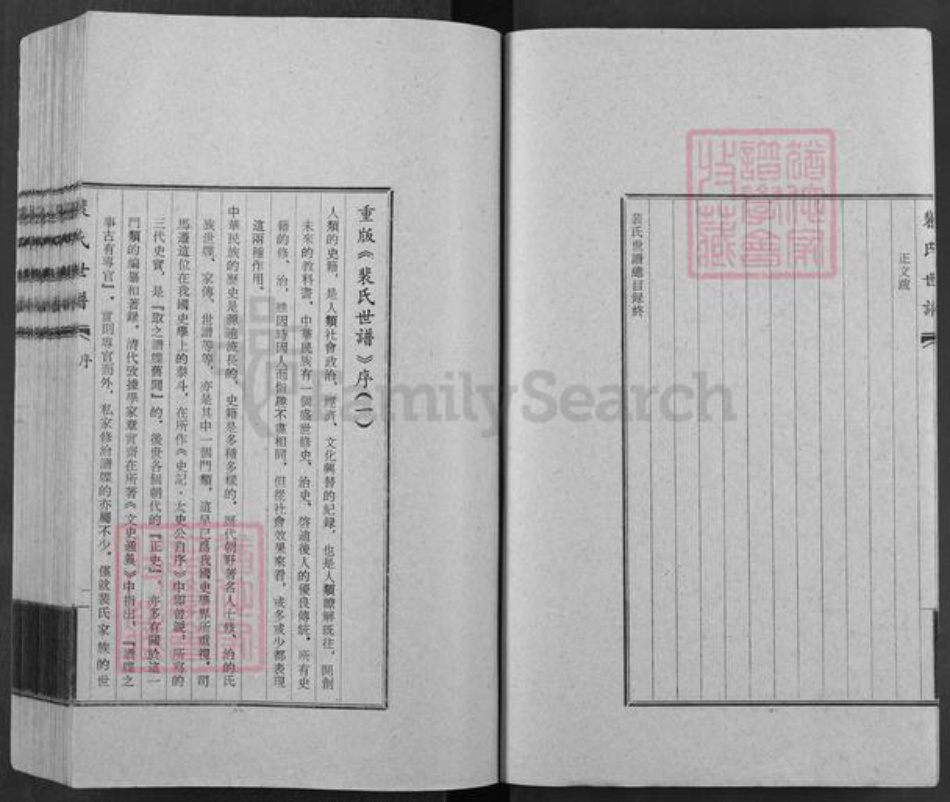 裴氏世譜
正文跋
裴氏世譜總目録終
重版《裴氏世譜》序(一)
人類的史籍，是人類社會政治、經濟、文化興替的紀録，也是人類瞭解既往，開創
未來的教科書。中華民族有一個盛世修史、治史、啓迪後人的優良傳統。所有史
籍的修、治，雖因時因人而指趣不盡相同，但從社會效果來看，或多或少都表現
這兩種作用。
中華民族的歷史是源遠流長的，史籍是多種多樣的。歷代朝野著名人士修、治的氏
族世牒、家傳、世譜等等，亦是其中一個門類，這早已爲我國史學界所重視。司
馬遷這位在我國史學上的泰斗，在所作《史記·太史公自序》中即曾説，所寫的
三代史實，是『取之譜牒舊聞』的。後世各個朝代的『正史』，亦多有關於這一
門類的編纂和著録。清代攷據學家章實齋在所著《文史通義》中指出，『譜牒之
事古有專官』。實則專官而外，私家修治譜牒的亦屬不少。僅就裴氏家族的世
裴氏世譜
序
一
FamilySearch